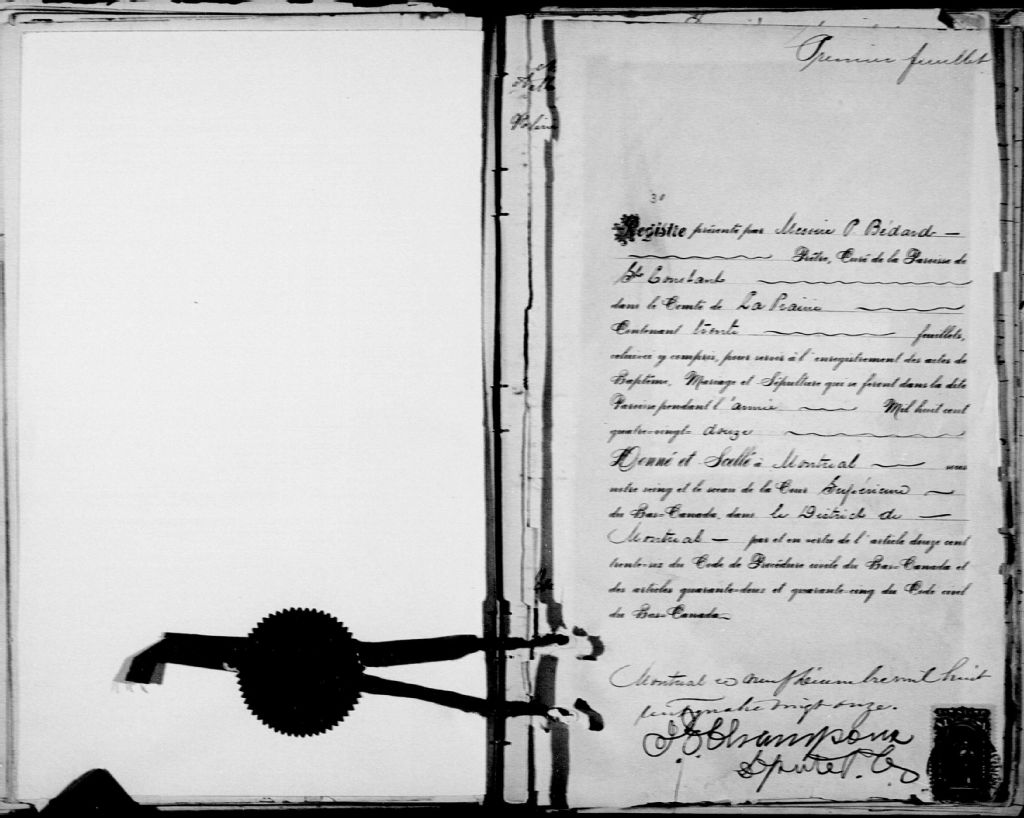 Premier feuillet
30
Registre présenté par Messire P. Bédard —
Prêtre, Curé de la Paroisse de
St Constant
dans le Comté de La Prairie
Contenant trente feuillets,
celui-ci y compris, pour servir à l'enregistrement des actes de
Baptême, Mariage et Sépulture qui se feront dans la dite
Paroisse pendant l'année Mil huit cent
quatre-vingt- douze
Donné et Scellé à Montréal sous
notre seing et le sceau de la Cour Supérieure
du Bas-Canada, dans le District de —
Montréal — par et en vertu de l'article douze cent
trente-six du Code de Procédure civile du Bas-Canada et
des articles quarante-deux et quarante-cinq du Code civil
du Bas-Canada.
Montréal ce neuf décembre mil huit
cent quatre vingt onze.
Champoux
Dpt P.